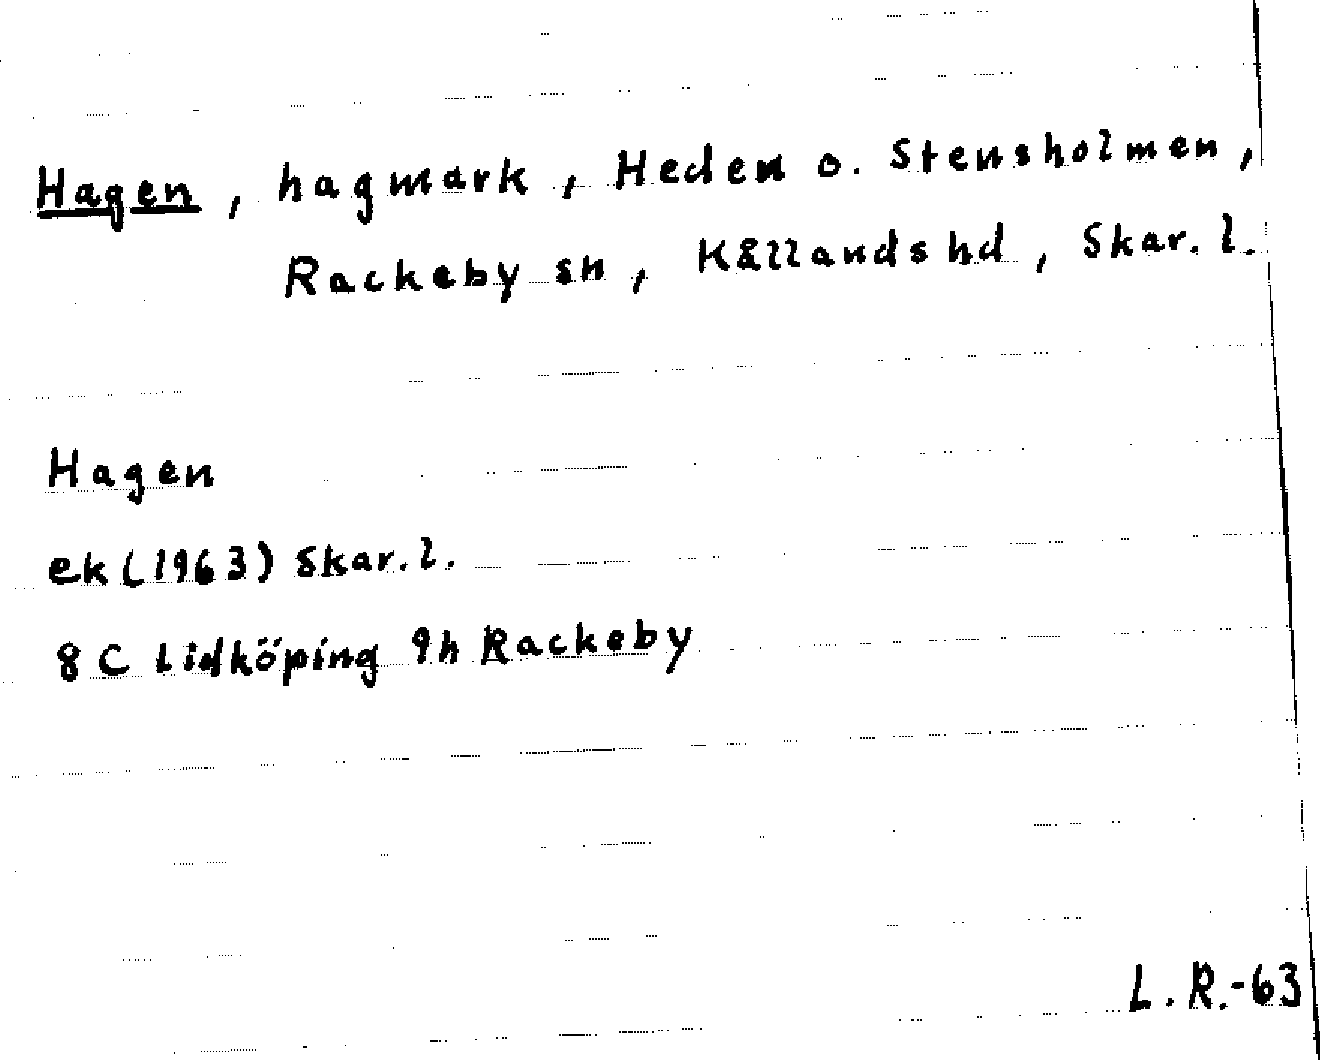 Hagen, hagmark, Heden o. Stensholmen,
Rackeby sn, Kållands hd, Skar. l.
Hagen
ek (1963) Skar. l.
8 C Lidköping 9h Rackeby
L. R.-63